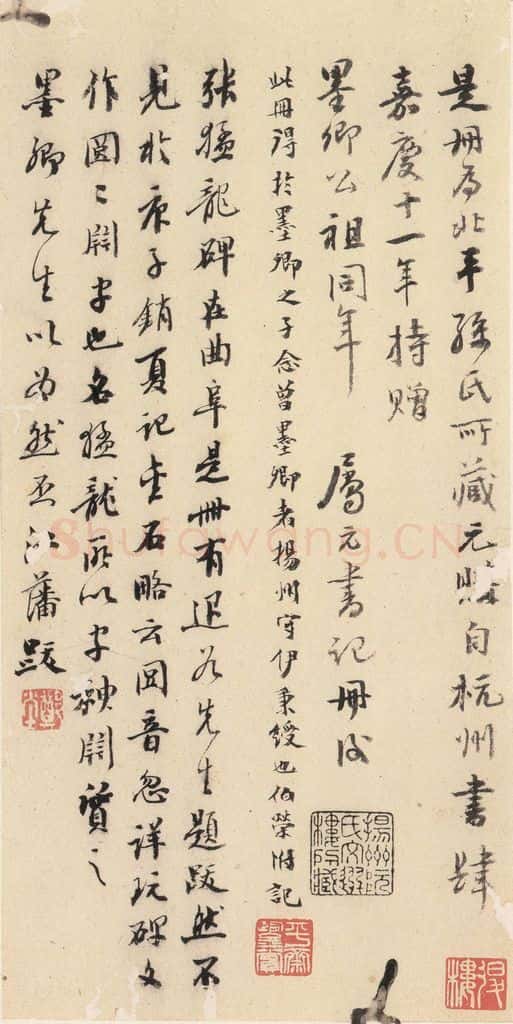 是冊為北平孫氏所藏元購自杭州書肆
嘉慶十一年持贈
墨卿公祖同年 屬元書記冊後
此冊得於墨卿之子念曾墨卿者揚州守伊秉綬也伯榮附記
張猛龍碑在曲阜是冊有退谷先生題跋然不
見於庚子銷夏記金石略云図音忽詳玩碑文
作図〻闢字也名猛龍所以字神闢質之
墨卿先生以為然否江藩跋
揚州阮氏文選樓所藏
Shufawang.CN